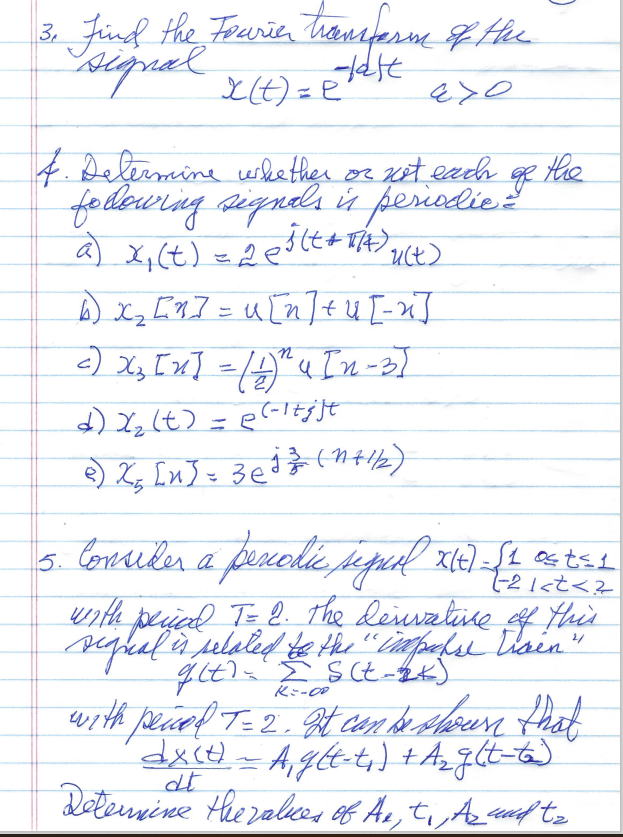 3. Find the Fourier transform of the
signal
x(t) = e^{-|a|t}    a>0
4. Determine whether or not each of the
following signals is periodic:
a) x₁(t) = 2e^{j(t+π/4)} u(t)
b) x₂[n] = u[n]+u[-n]
c) x₃[n] = (1/2)^n u[n-3]
d) x₂(t) = e^{(-1+j)t}
e) x₅[n] = 3e^{j 3/5 (n+1/2)}
5. Consider a periodic signal x(t) = {1 0≤t≤1
{-2 1<t<2
with period T=2. The derivative of this
signal is related to the "impulse train"
g(t) = Σ_{k=-∞} δ(t-2k)
with period T=2. It can be shown that
dx(t)/dt = A₁g(t-t₁) + A₂g(t-t₂)
Determine the values of A₁, t₁, A₂ and t₂